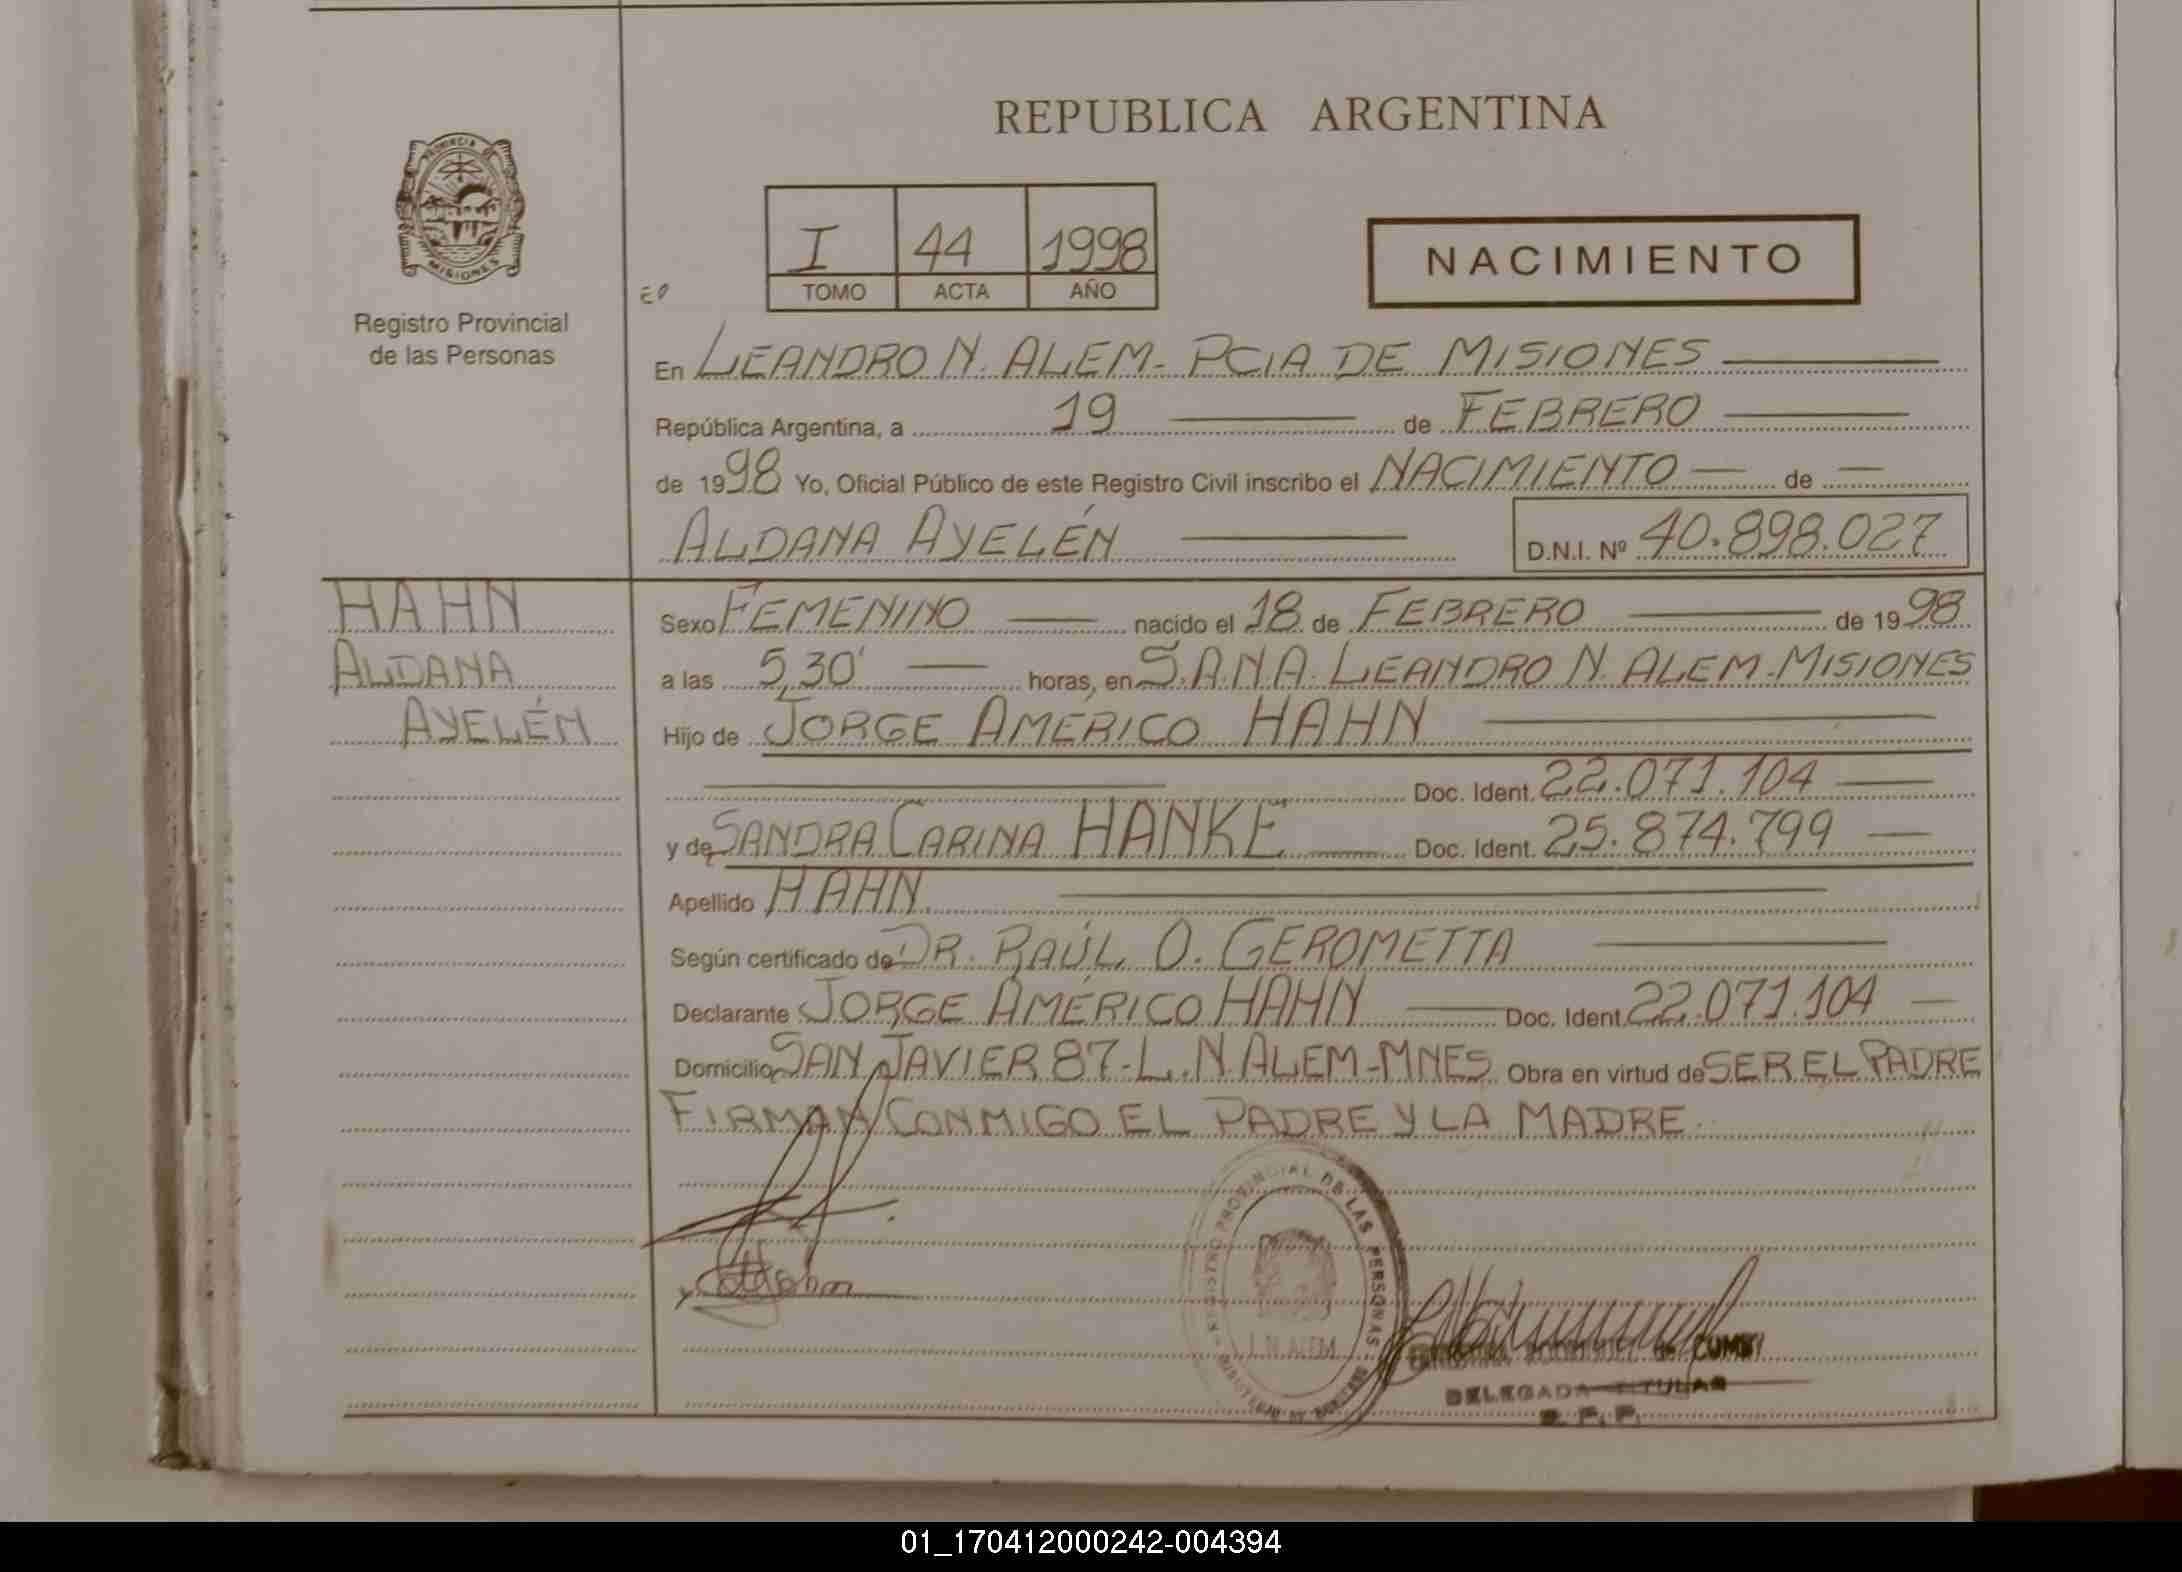 REPUBLICA ARGENTINA
PROVINCIA DE
MISIONES
Registro Provincial
de las Personas
I 44 1998
TOMO ACTA AÑO
NACIMIENTO
En LEANDRO N. ALEM - PCIA DE MISIONES
República Argentina, a 19 de FEBRERO
de 1998 Yo, Oficial Público de este Registro Civil inscribo el NACIMIENTO — de —
ALDANA AYELÉN
D.N.I. Nº 40.898.027
HAHN
ALDANA
AYELÉN
Sexo FEMENINO nacido el 18 de FEBRERO de 1998
a las 5,30' horas, en S.A.N.A. LEANDRO N. ALEM - MISIONES
Hijo de JORGE AMÉRICO HAHN
Doc. Ident. 22.071.104
y de SANDRA CARINA HANKE Doc. Ident. 25.874.799
Apellido HAHN
Según certificado de DR. RAÚL O. GEROMETTA
Declarante JORGE AMÉRICO HAHN Doc. Ident. 22.071.104
Domicilio SAN JAVIER 87 - L.N. ALEM - MNES Obra en virtud de SER EL PADRE
FIRMAN CONMIGO EL PADRE Y LA MADRE.
REGISTRO PROVINCIAL DE LAS PERSONAS
L.N. ALEM
de CUMBY
DELEGADA TITULAR
R. P. P.
01_170412000242-004394